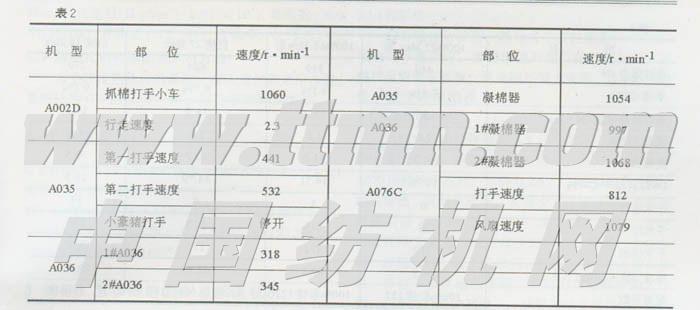 表2
机 型 部 位 速度/r·min⁻¹ 机 型 部 位 速度/r·min⁻¹
A002D 抓棉打手小车 1060 A035 凝棉器 1054
行走速度 2.3 A036 1#凝棉器 997
A035 第一打手速度 441 A076C 2#凝棉器 1068
第二打手速度 532 打手速度 812
小豪猪打手 停开 风扇速度 1079
A036 1#A036 318
2#A036 345
www.ttmn.com
中国纺机网